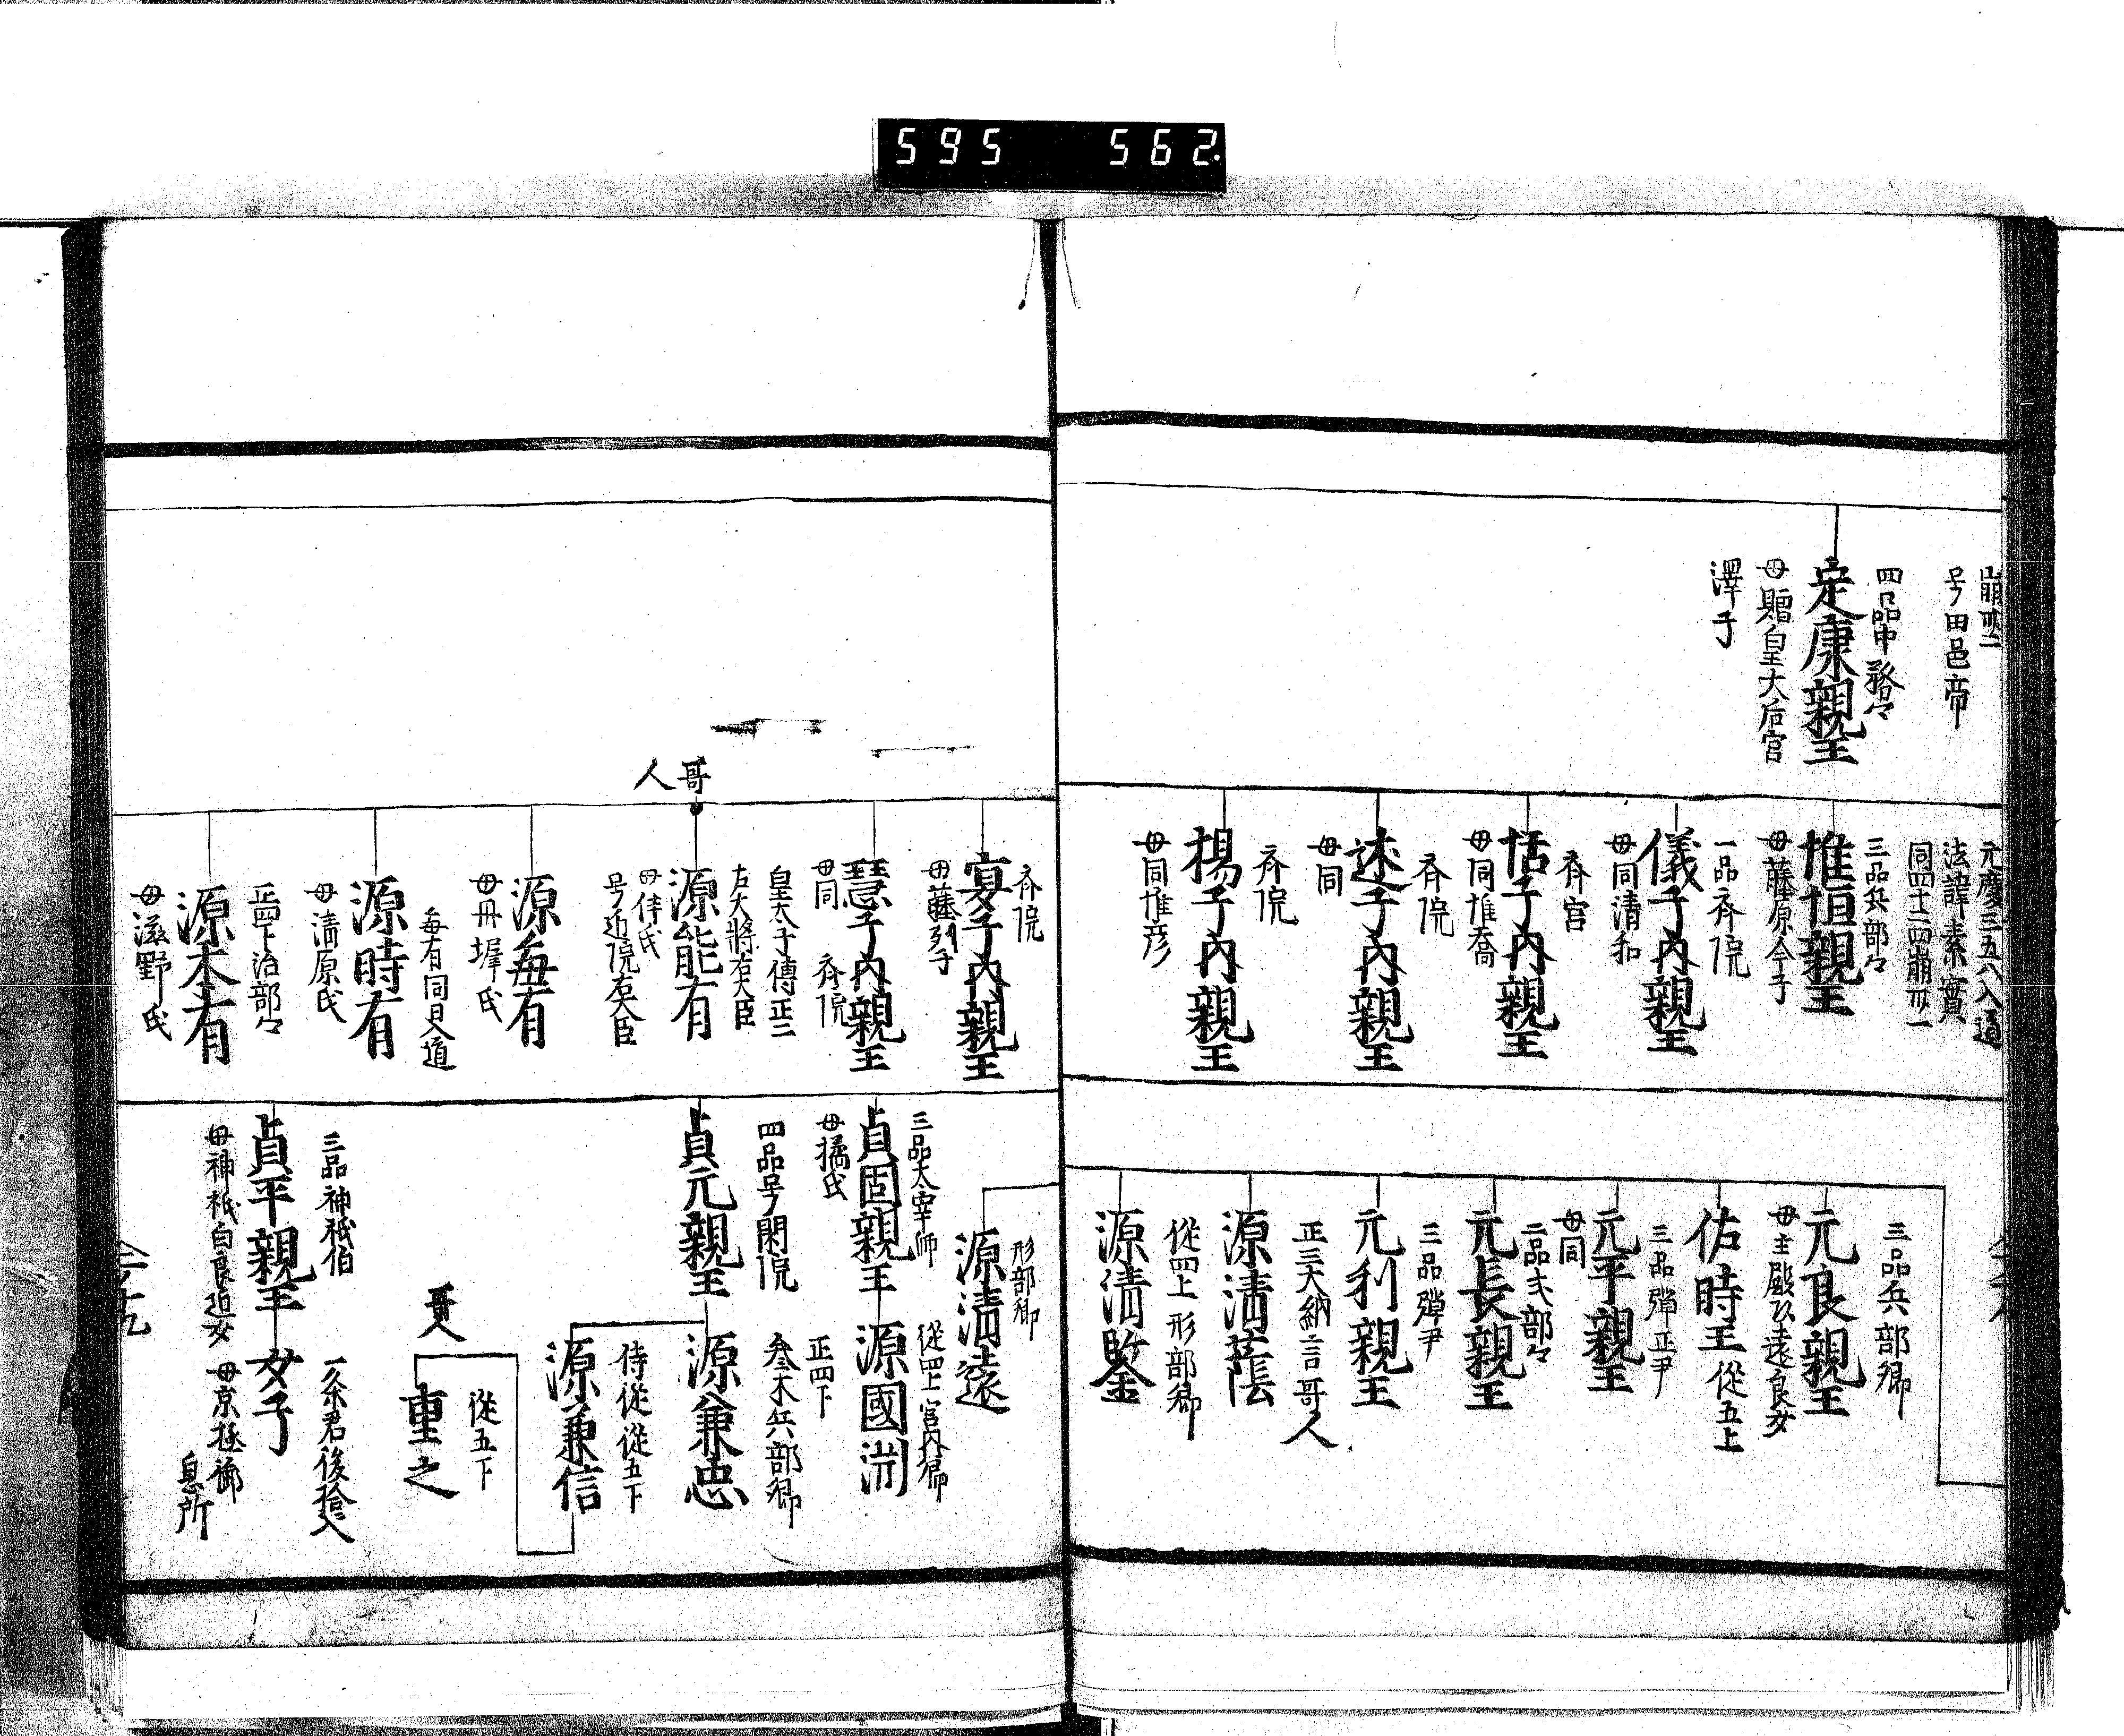 595 562
号田邑帝
四品中務々
定康親王
母贈皇大后宮
澤子
元慶三五八入道
法諱素實
同四十二四崩卅一
三品兵部々
惟恒親王
母藤原今子
一品斉院
儀子内親王
母同清和
斉宮
恬子内親王
母同惟喬
斉院
述子内親王
母同
斉院
掲子内親王
母同惟彦
三品兵部卿
元良親王
母主殿以遠良女
佐時王 從五上
三品弾正尹
元平親王
母同
二品式部々
元長親王
三品弾尹
元利親王
正三大納言哥人
源清蔭
從四上形部卿
源清鑒
斉院
宴子内親王
母藤列子
斉院
慧子内親王
母同
皇太子傅正二
左大將右大臣
哥人
源能有
母伴氏
号近院右大臣
源毎有
母丹墀氏
毎有同日入道
源時有
母清原氏
正四下治部々
源本有
母滋野氏
形部卿
源清遠
三品太宰帥
貞固親王
母橘氏
從四上宮内卿
源國渕
四品号閑院
貞元親王
正四下
叄木兵部卿
源兼忠
侍從從五下
源兼信
從五下
重之
三品神祇伯
貞平親王
母神祇白良近女
一条君後拾人
女子
母京極御
息所